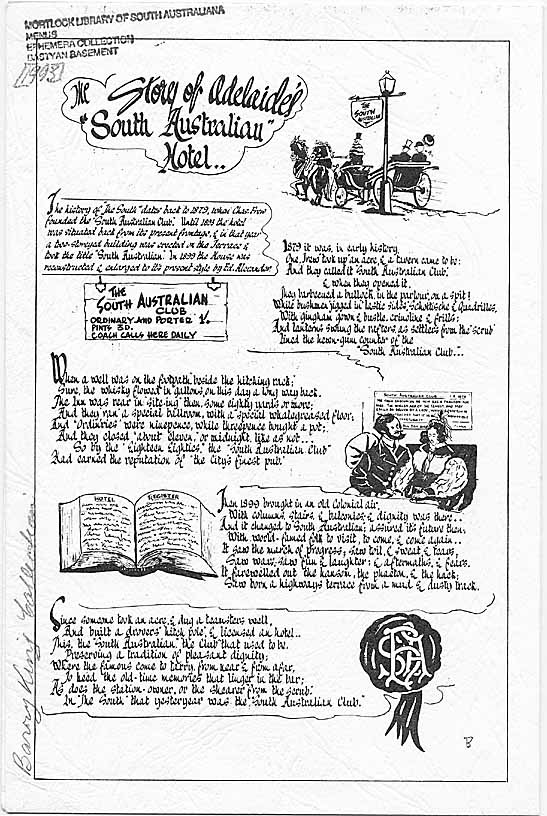 MORTLOCK LIBRARY OF SOUTH AUSTRALIANA
MENUS
EPHEMERA COLLECTION
BASTYAN BASEMENT
[1993]
The Story of Adelaide's
"South Australian"
Hotel..
THE SOUTH AUSTRALIAN
The history of "The South" dates back to 1879, when Chas. Frow
founded the "South Australian Club." Until 1893 the hotel
was situated back from its present frontage, & in that year
a two-storeyed building was erected on the Terrace &
took the title "South Australian." In 1899 the House was
reconstructed & enlarged to its present style by Ed. Alexander.
THE
SOUTH AUSTRALIAN
CLUB
ORDINARY AND PORTER 1/-
PINTS 3D.
COACH CALLS HERE DAILY
1879 it was, in early history
One Frow took up an acre, & a tavern came to be:
And they called it "South Australian Club",
& when they opened it,
They barbecued a bullock, in the parlour, on a spit!
While bushmen jigged in lastic sides, Schottische & Quadrilles,
With gingham gown & bustle, crinoline & frills:
And lanterns swung the rafters, as settlers from the scrub
Lined the hewn-gum counter of the
"South Australian Club"...
When a well was on the footpath beside the hitching rack;
Sure, the whisky flowed in gallons on this day a long way back.
The Inn was rear in 'site-ing' then, some eighty yards or more,
And they ran a special ballroom, with a special whalegreased floor;
And 'Ordin'ries' were ninepence, while threepence bought a pot;
And they closed "about eleven," or midnight, like as not...
So by the "Eighteen Eighties," the "South Australian Club"
Had earned the reputation of "the city's finest pub."
SOUTH AUSTRALIAN CLUB
HOTEL
REGISTER
Then 1899 brought in an old Colonial air,
With columns, stairs, & balconies, & dignity was there..
And it changed to South Australian; assured its future then,
With world-famed folk to visit, to come, & come again..
It saw the march of progress; saw toil, & sweat & tears,
Saw wars, saw fun & laughter: & aftermaths, & fears.
It farewelled out the hansom, the phaeton, & the hack;
Saw born a highways terrace from a mud & dusty track.
Since someone took an acre, & dug a teamsters well,
And built a drovers' hitch pole, & licensed an hotel..
This, the "South Australian," the Club that used to be,
Preserving a tradition of pleasant dignity;
Where the famous come to tarry, from near & from afar,
To heed the old-time memories that linger in the bar;
As does the station-owner, or the shearer from the scrub,
In "The South" that yesteryear was the "South Australian Club."
B